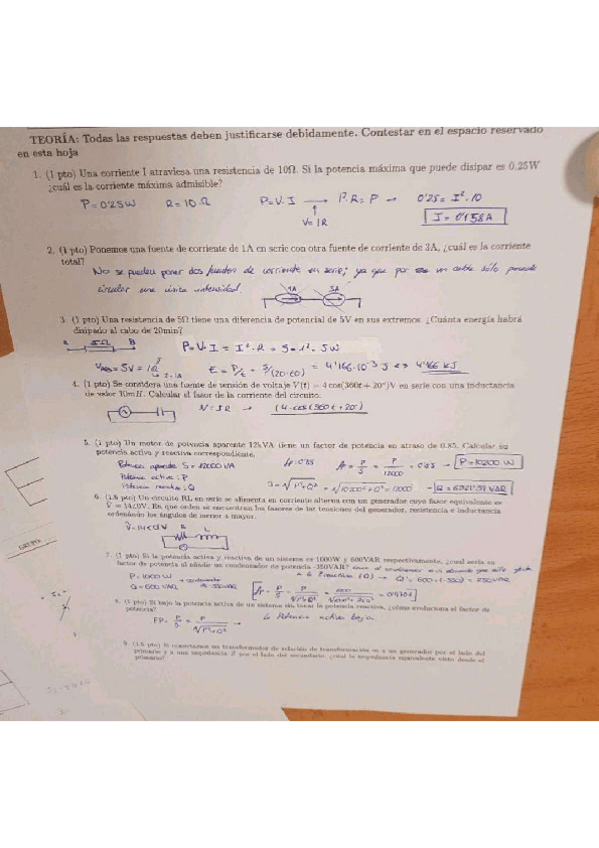 TEORÍA: Todas las respuestas deben justificarse debidamente. Contestar en el espacio reservado
en esta hoja
1. (1 pto) Una corriente I atraviesa una resistencia de 10Ω. Si la potencia máxima que puede disipar es 0.25W
¿cuál es la corriente máxima admisible?
P=0'25W R=10Ω P=V·I → I²·R=P → 0'25=I²·10
V=IR I=0'158A
2. (1 pto) Ponemos una fuente de corriente de 1A en serie con otra fuente de corriente de 3A, ¿cuál es la corriente
total?
No se pueden poner dos fuentes de corriente en serie, ya que por un cable sólo puede
circular una única intensidad.
1A 3A
3. (1 pto) Una resistencia de 5Ω tiene una diferencia de potencial de 5V en sus extremos. ¿Cuánta energía habrá
disipado al cabo de 20min?
A 5Ω B P=V·I = I²·R = 5·1² = 5W
V_AB=5V=IR I=1A E=P/t = 5/(20·60) = 4'166·10⁻³ J ⇔ 4'166 kJ
4. (1 pto) Se considera una fuente de tensión de voltaje V(t) = 4cos(360t+20°)V en serie con una inductancia
de valor 10mH. Calcular el fasor de la corriente del circuito.
(4·cos(360t+20°)
5. (1 pto) Un motor de potencia aparente 12kVA tiene un factor de potencia en atraso de 0.85. Calcular su
potencia activa y reactiva correspondiente.
Potencia aparente S=12000VA fp=0'85 fp = P/S = P/12000 = 0'85 → P=10200W
Potencia activa: P
Potencia reactiva: Q S=√P²+Q² = √10200²+Q² = 12000
6. (1.5 pto) Un circuito RL en serie se alimenta en corriente alterna con un generador cuyo fasor equivalente es
V = 14∠0V. En que orden se encuentran los fasores de las tensiones del generador, resistencia e inductancia
ordenando los ángulos de menor a mayor.
V=14∠0V R L
7. (1 pto) Si la potencia activa y reactiva de un sistema es 1000W y 600VAR respectivamente, ¿cual sería su
factor de potencia si añadir un condensador de potencia -350VAR?
P=1000W a la P reactiva (Q) → Q'=600+(-350)=250VAR
Q=600VAR
8. (1 pto) Si bajo la potencia activa de un sistema sin tocar la potencia reactiva, ¿cómo evoluciona el factor de
potencia?
FP= P/S = P/√P²+Q² → la Potencia activa baja.
9. (1.5 pto) Si conectamos un transformador de relación de transformación m a un generador por el lado del
primario y a una impedancia Z por el lado del secundario, ¿cuál la impedancia equivalente visto desde el
primario?
GRUPO